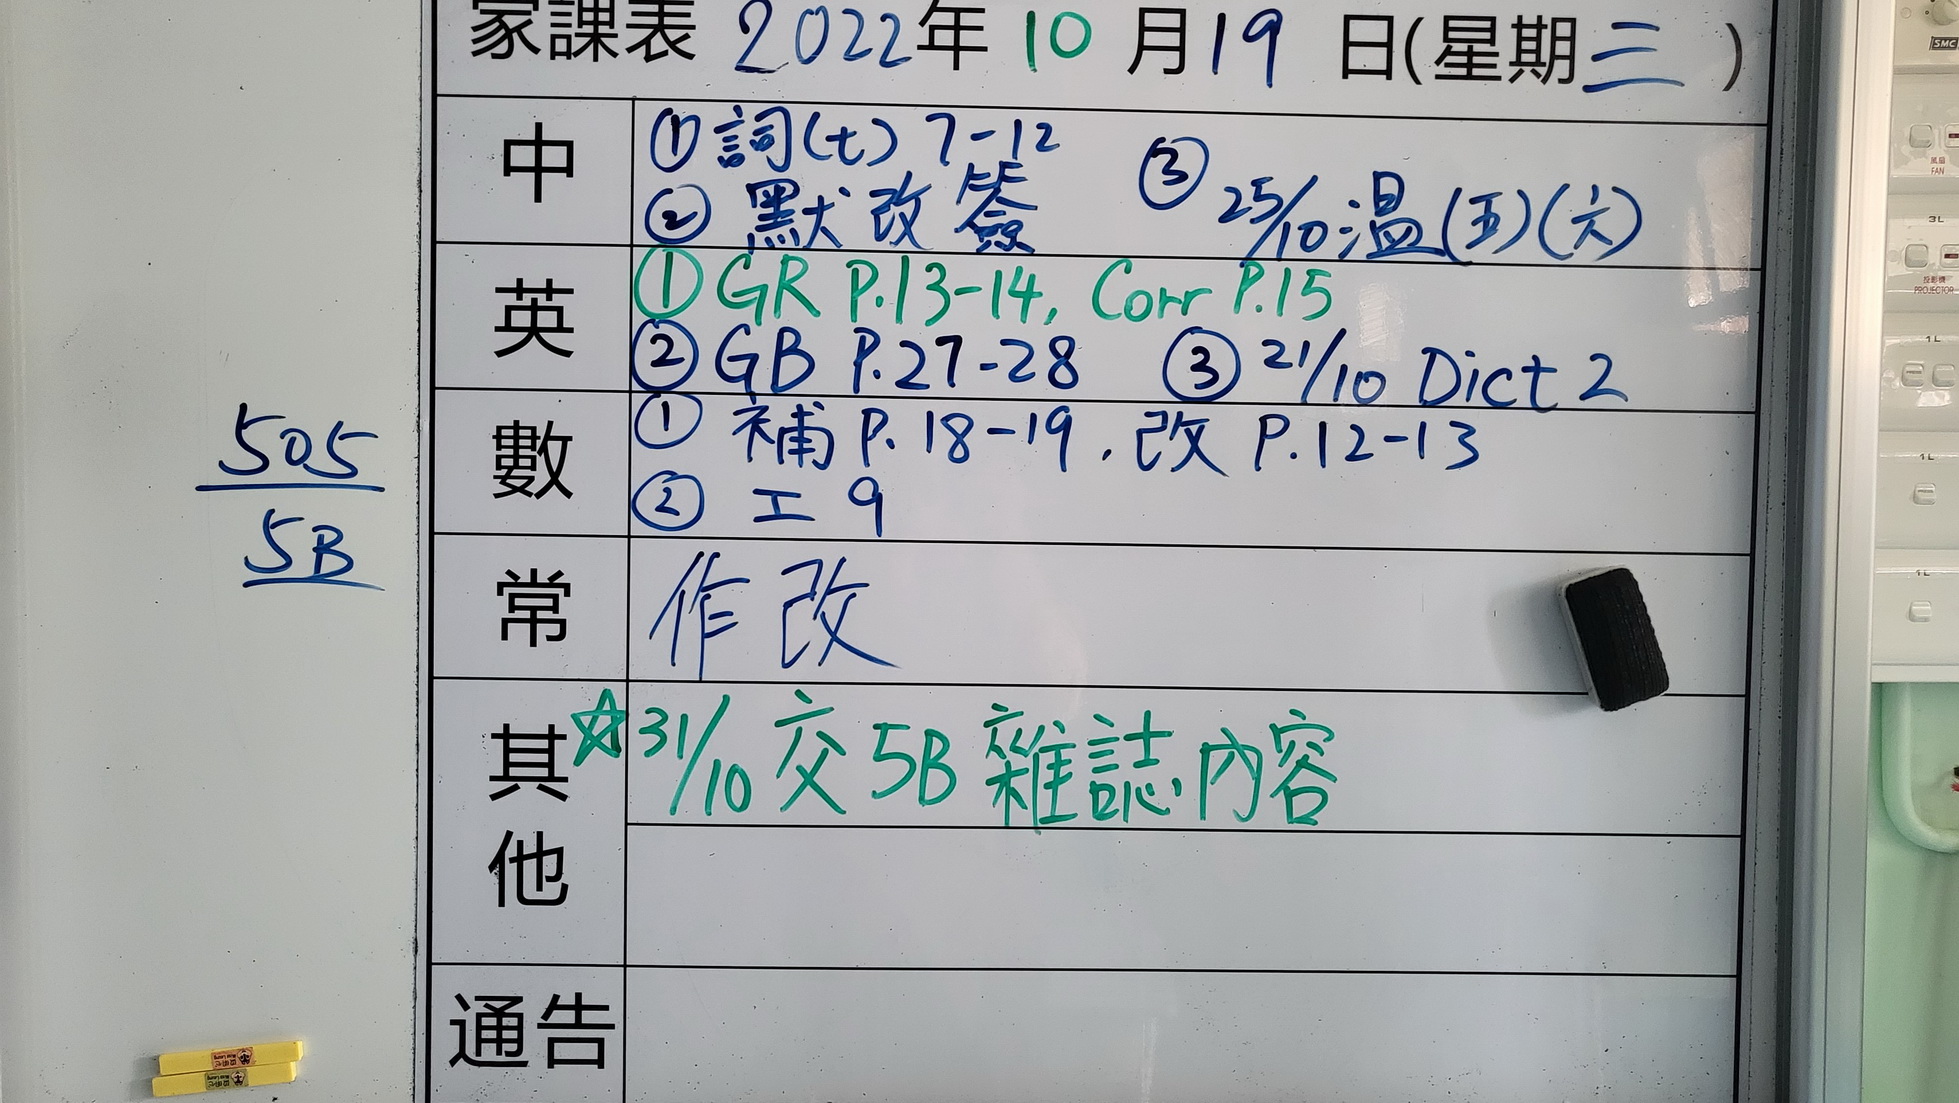 家課表 2022年 10 月 19 日(星期三)
中
① 詞(七) 7-12
② 默改簽
③ 25/10 溫(五)(六)
英
① GR P.13-14, Corr P.15
② GB P.27-28 ③ 21/10 Dict 2
數
① 補 P.18-19, 改 P.12-13
② 工 9
常
作改
其他
☆31/10 交 5B 雜誌內容
通告
505
5B
SMC
風扇
FAN
3L
投影機
PROJECTOR
1L
1L
1L